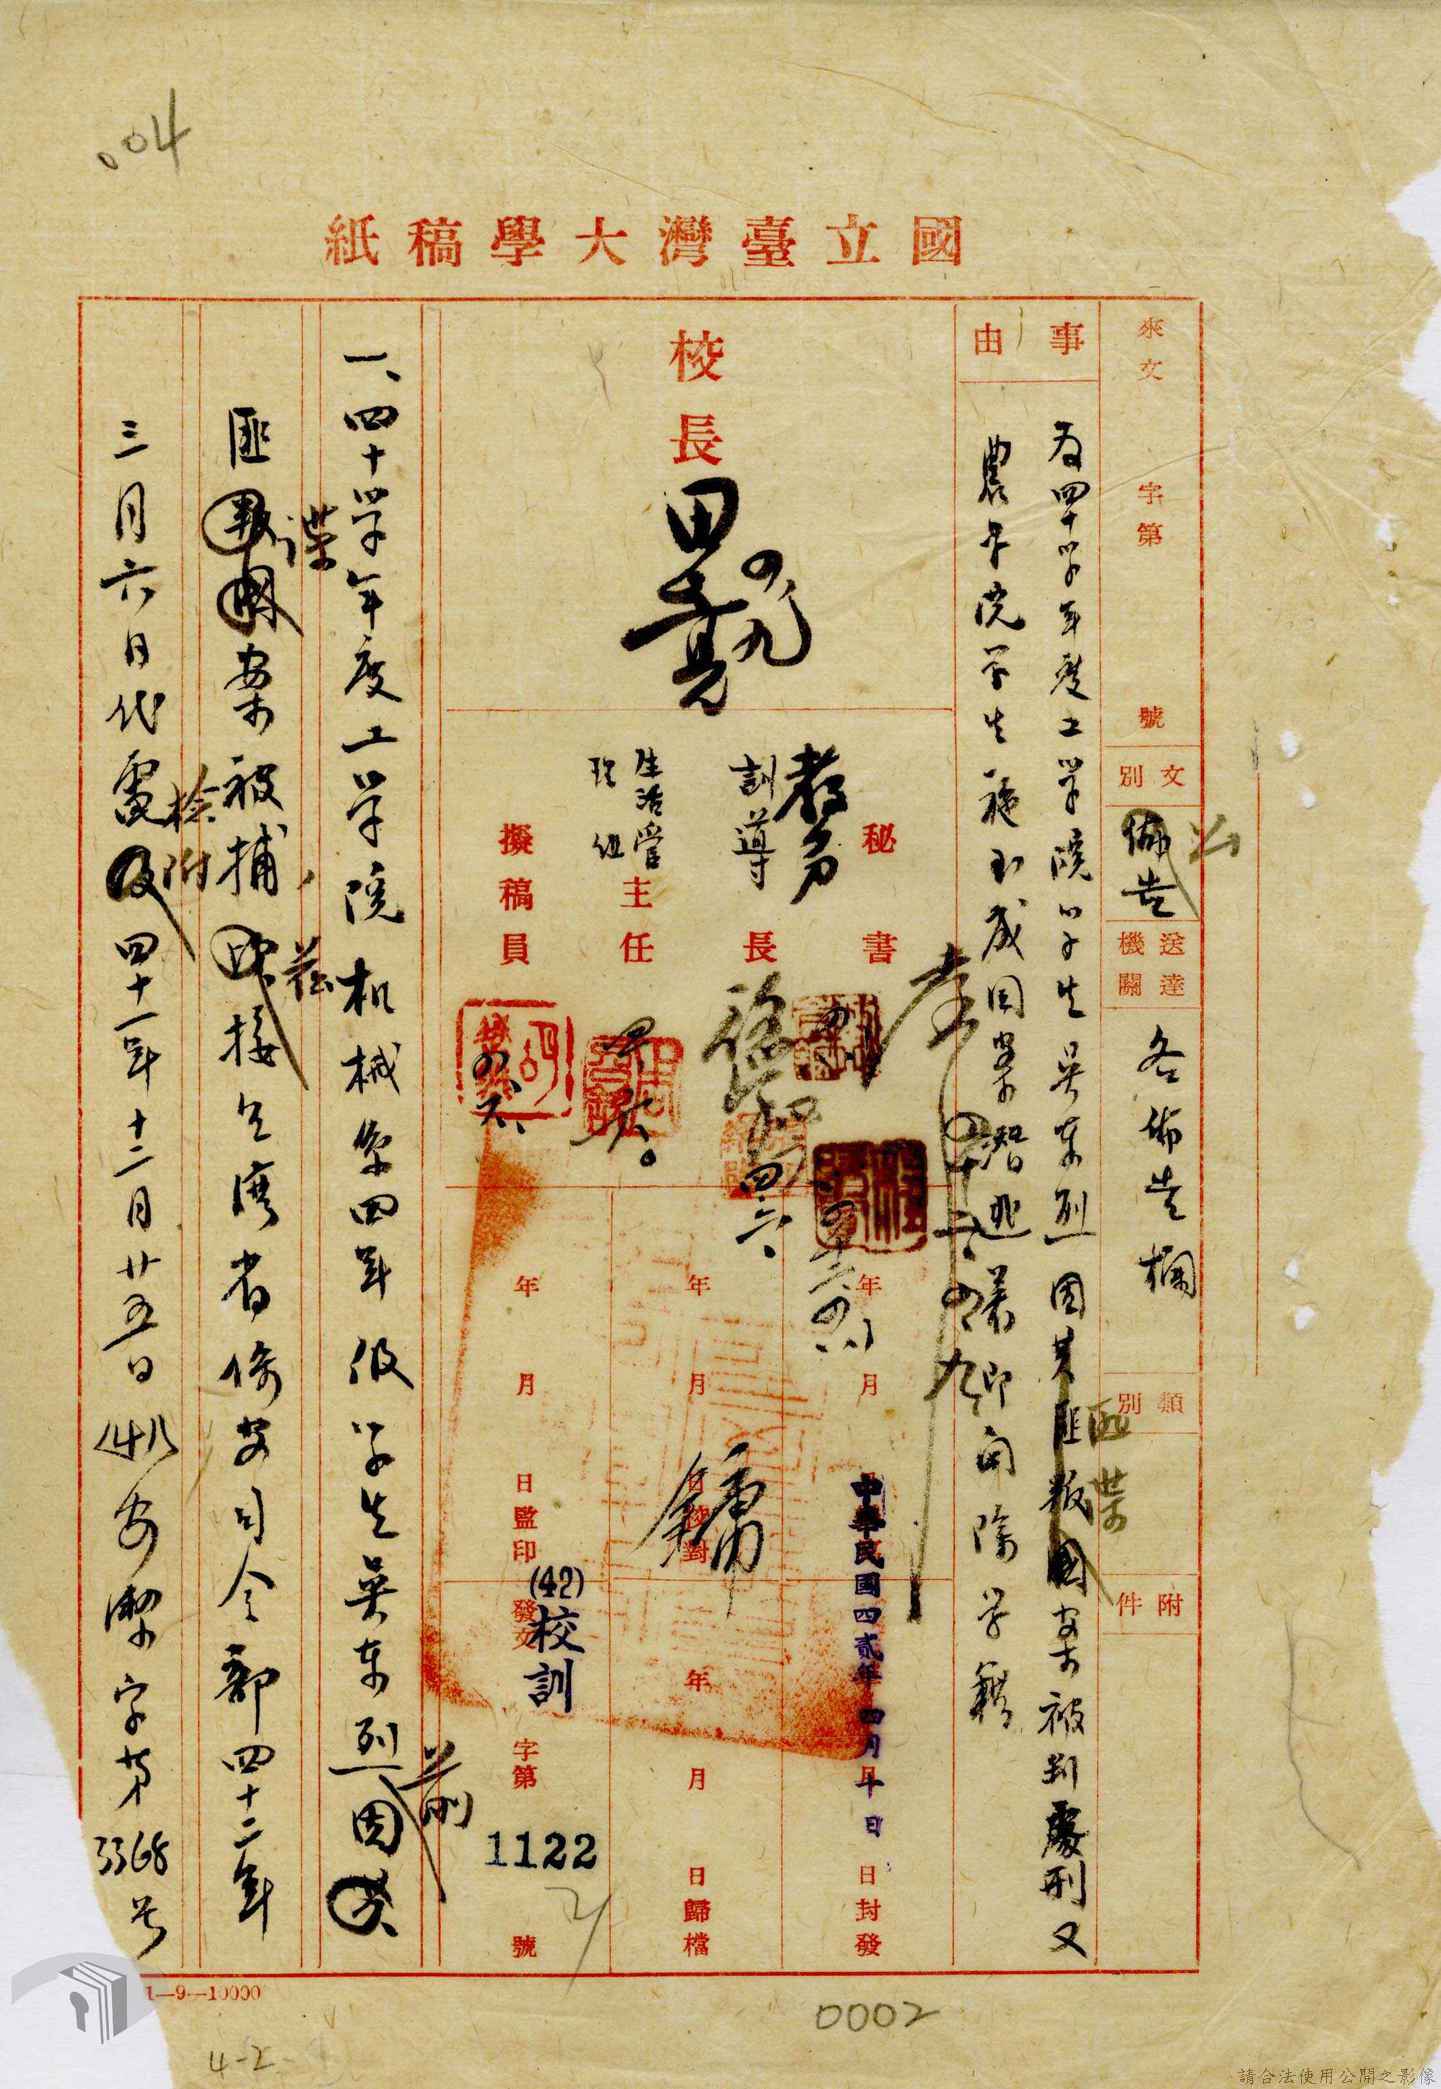 004
國立臺灣大學稿紙
來文 字第 號
文別
佈告
公
送達機關
各佈告欄
類別
附件
事由
為四十学年度工学院学生吳東烈因其匪叛國案被判處刑又
匪諜
農学院学生 成因案潛逃 即開除学籍
校長
田
四九
秘書
教务
訓導長
生活管理組主任
擬稿員
四六
年 月 日封發
年 月 日校對
年 月 日監印
中華民國四貳年四月十日
年 月 日歸檔
發文 字第 號
(42)校訓
1122
一、四十学年度工学院机械系四年級学生吳東烈因其
前
匪叛國案被捕 接台湾省保安司令部四十二年
諜
茲
三月六日代電及四十一年十二月廿五日(41)安潔字第3368号
檢附
1—9—10000
0002
4-2
請合法使用公開之影像